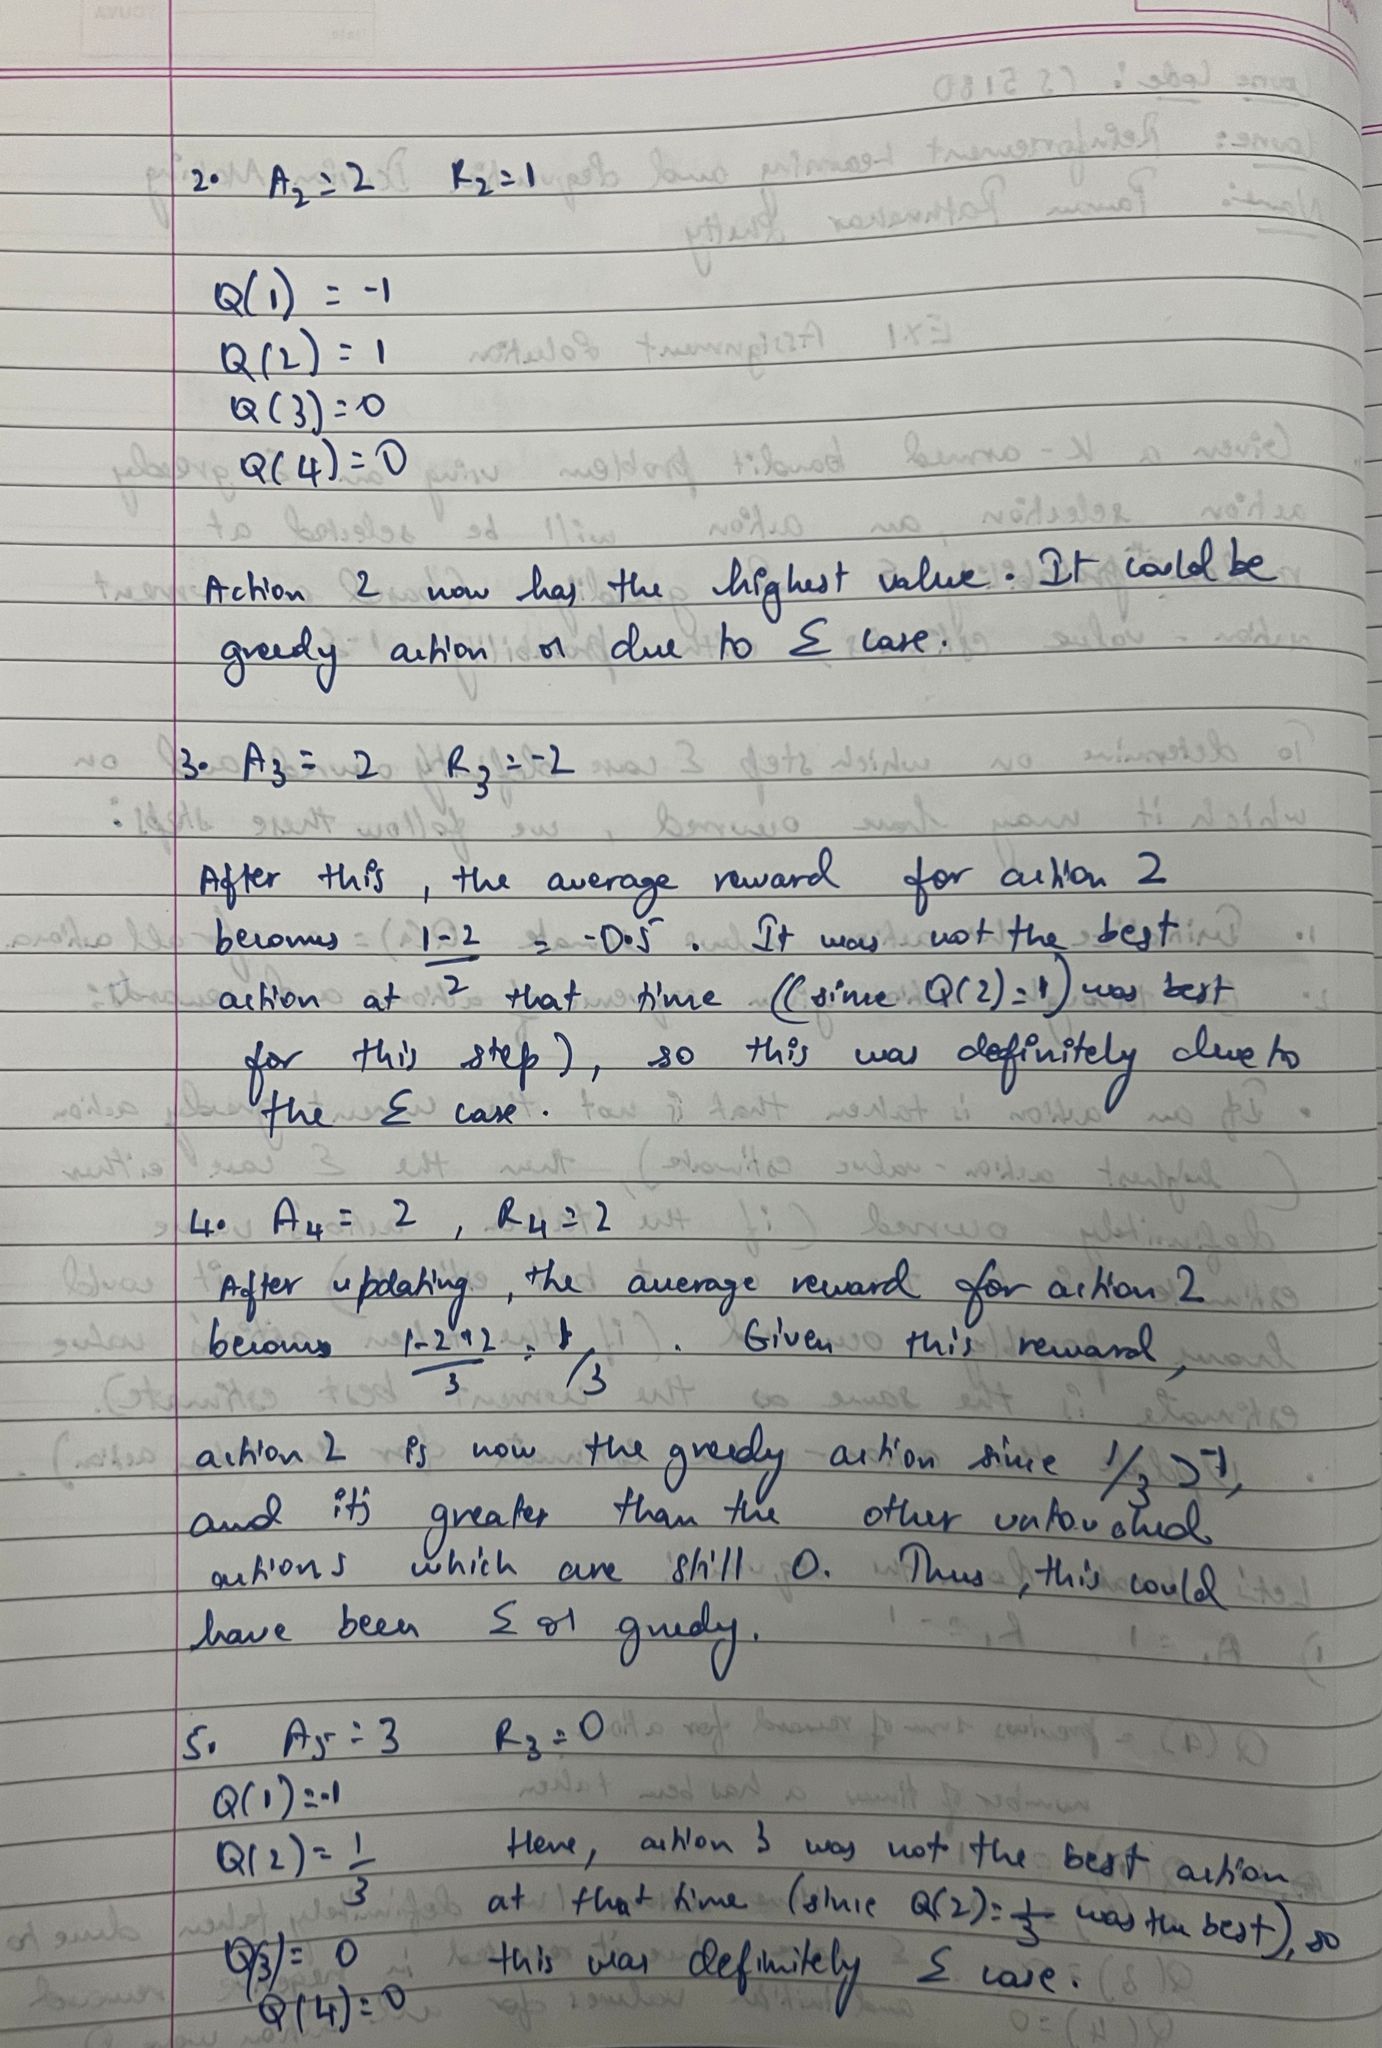 2. A2 = 2 R2 = 1
Q(1) = -1
Q(2) = 1
Q(3) = 0
Q(4) = 0
Action 2 now has the highest value. It could be
greedy action or due to Ɛ case.
3. A3 = 2 R3 = -2
After this, the average reward for action 2
becomes = 1-2/2 = -0.5. It was not the best
action at that time ((since Q(2) = 1) was best
for this step), so this was definitely due to
the Ɛ case.
4. A4 = 2, R4 = 2
After updating, the average reward for action 2
becomes 1-2+2/3 = 1/3. Given this reward,
action 2 is now the greedy action since 1/3 > -1,
and its greater than the other untouched
actions which are still 0. Thus, this could
have been Ɛ or greedy.
5. A5 = 3 R3 = 0
Q(1) = -1
Q(2) = 1/3
Q(3) = 0
Q(4) = 0
Here, action 3 was not the best action
at that time (since Q(2) = 1/3 was the best), so
this was definitely Ɛ case.